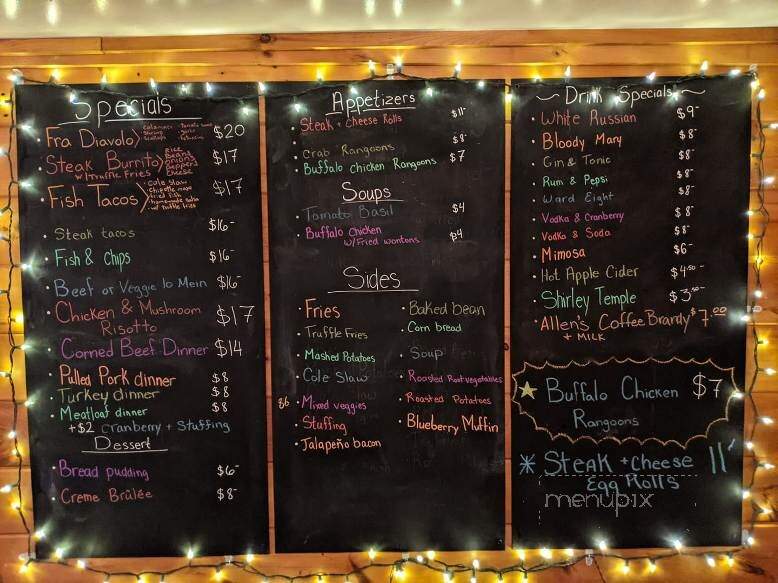 Specials
Fra Diavolo $20
calamari
shrimp
scallops
tomato sauce
garlic
fettuccine
Steak Burrito $17
w/truffle Fries
Rice
Beans
onions
peppers
cheese
Fish Tacos $17
cole slaw
chipotle mayo
fried fish
homemade salsa
w/ truffle fries
Steak tacos $16-
Fish & Chips $16-
Beef or Veggie lo Mein $16-
Chicken & Mushroom $17
Risotto
Corned Beef Dinner $14
Pulled Pork dinner $8
Turkey dinner $8
Meatloaf dinner $8
+$2 cranberry + Stuffing
Dessert
Bread pudding $6-
Creme Brûlée $8-
Appetizers
Steak + Cheese Rolls $11-
Crab Rangoons $8-
Buffalo chicken Rangoons $7
Soups
Tomato Basil $4
Buffalo Chicken $4
w/Fried wontons
Sides
Fries
Truffle Fries
Mashed Potatoes
Cole Slaw
$6 Mixed veggies
Stuffing
Jalapeño bacon
Baked bean
Corn bread
Soup
Roasted Root vegetables
Roasted Potatoes
Blueberry Muffin
Drink Specials
White Russian $9-
Bloody Mary $8-
Gin & Tonic $8-
Rum & Pepsi $8-
Ward Eight $8-
Vodka & Cranberry $8-
Vodka & Soda $8-
Mimosa $6-
Hot Apple Cider $4.50-
Shirley Temple $3.50-
Allen's Coffee Brandy $7.00
+ MILK
Buffalo Chicken $7
Rangoons
Steak + Cheese 11-
Egg Rolls
menupix